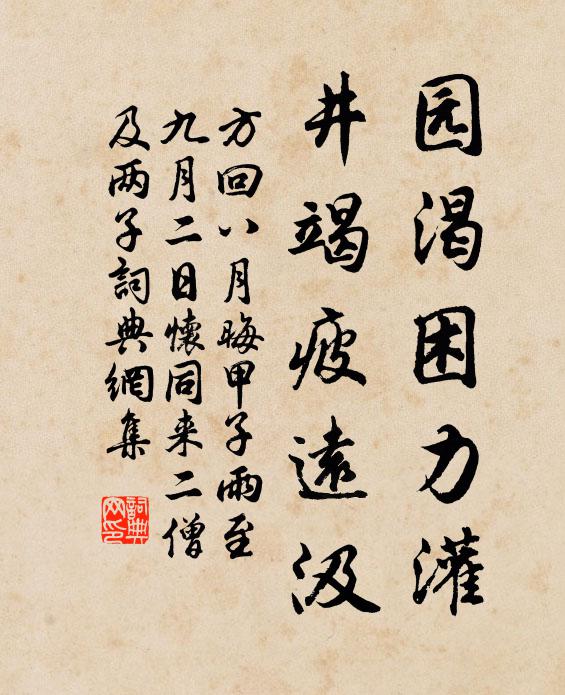 园渴困力灌
井竭疲遠汲
方回八月晦甲子雨至
九月二日懷同来二僧
及两子詞典網集
詞典
网印